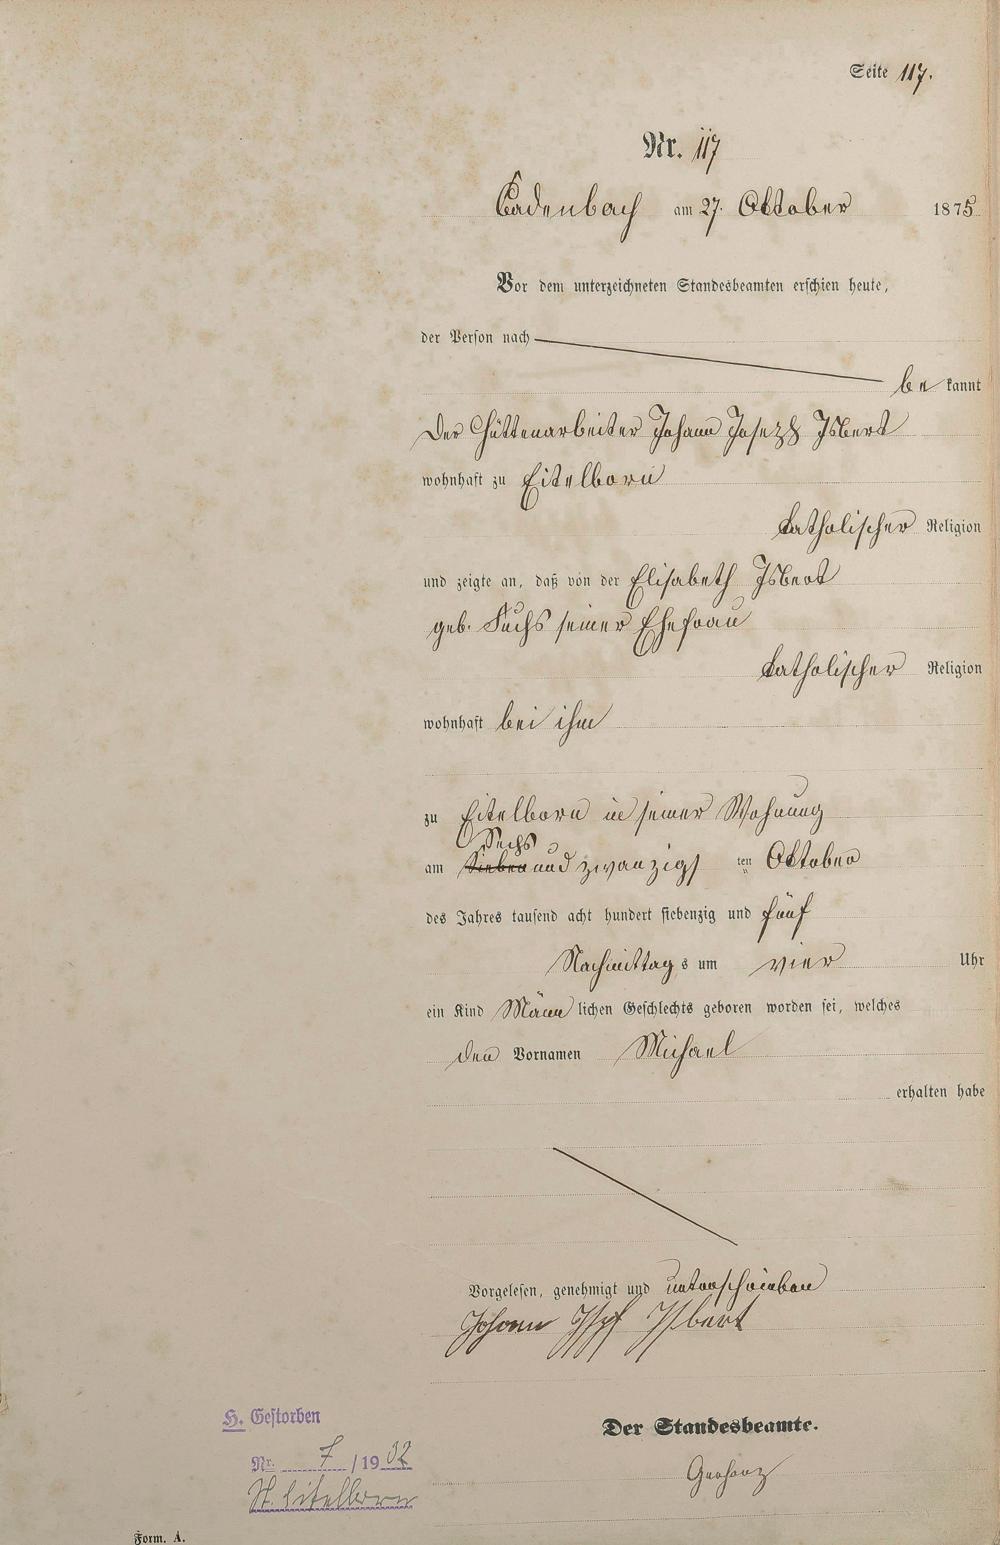 Seite 117.
Nr. 117
Cadenbach am 27. Oktober 1875
Vor dem unterzeichneten Standesbeamten erschien heute,
der Person nach
be kannt
Der Hüttenarbeiter Johann Joseph Isbert
wohnhaft zu Eitelborn
katholischer Religion
und zeigte an, daß von der Elisabeth Isbert
geb. Fuchs seiner Ehefrau
katholischer Religion
wohnhaft bei ihm
zu Eitelborn in seiner Wohnung
Sechs
am Sieben und zwanzigs ten Oktober
des Jahres tausend acht hundert siebenzig und fünf
Nachmittag s um vier Uhr
ein Kind Männ lichen Geschlechts geboren worden sei, welches
den Vornamen Michael
erhalten habe
Vorgelesen, genehmigt und unterschrieben
Johann Jspf Isbert
H. Gestorben
Nr. 7 /1932
St. Eitelborn
Der Standesbeamte.
Gerharz
Form. A.